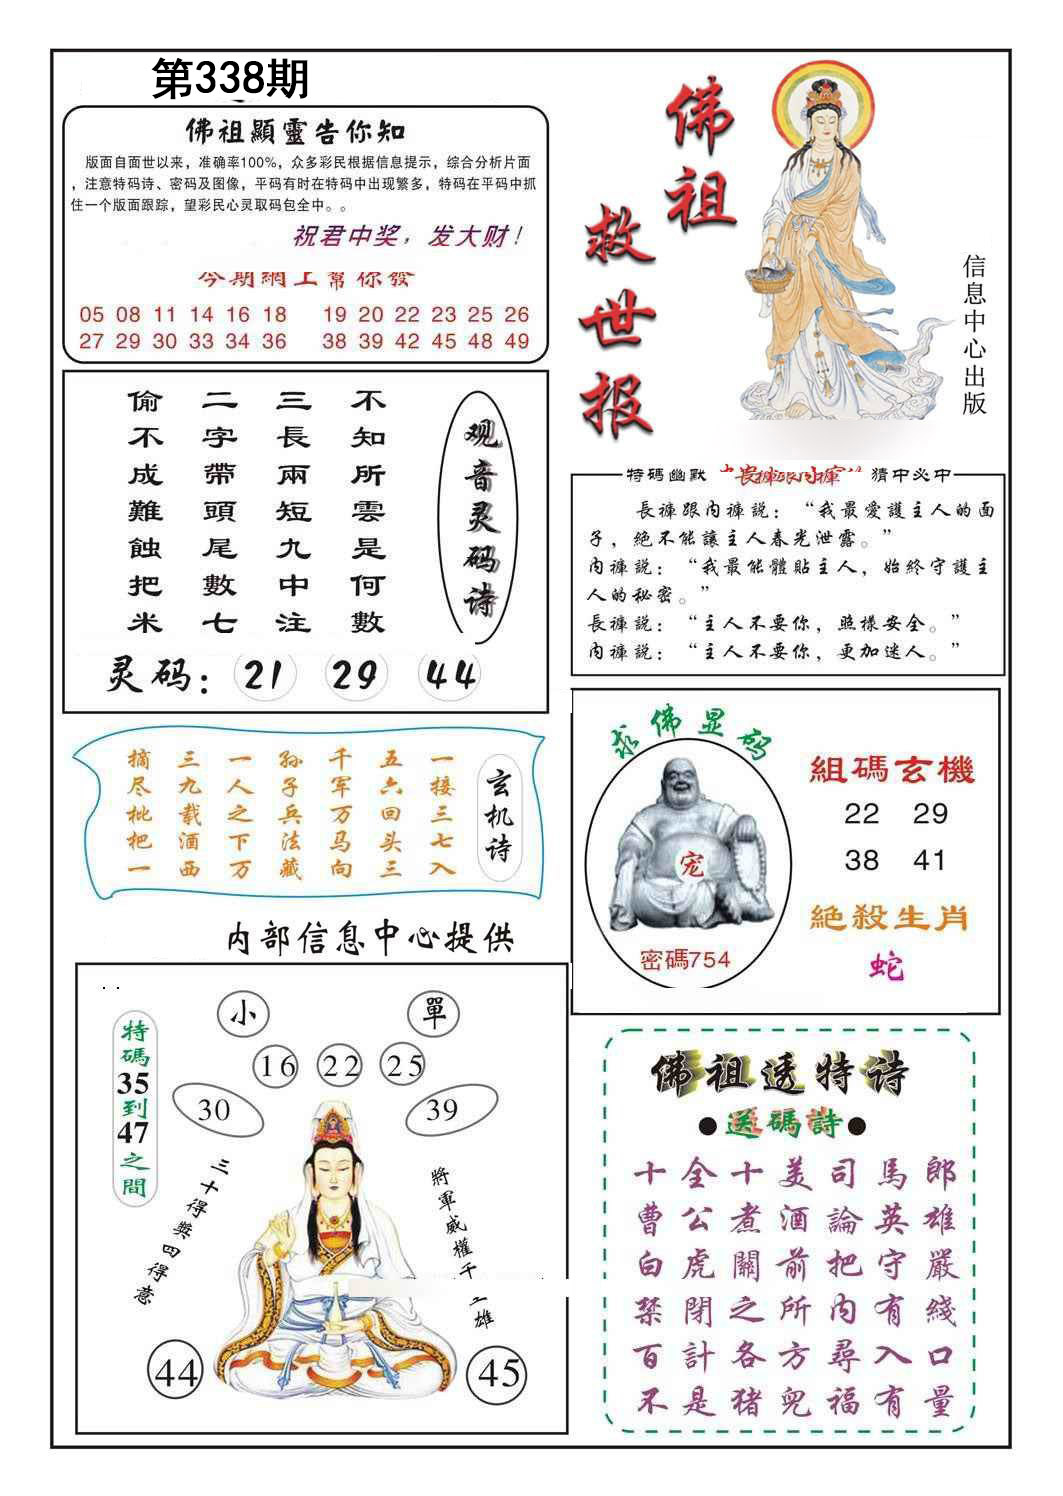 第338期
佛祖顯靈告你知
版面自面世以来，准确率100%，众多彩民根据信息提示，综合分析片面
，注意特码诗、密码及图像，平码有时在特码中出现繁多，特码在平码中抓
住一个版面跟踪，望彩民心灵取码包全中。。
祝君中奖，发大财！
今期網上幫你發
05 08 11 14 16 18 19 20 22 23 25 26
27 29 30 33 34 36 38 39 42 45 48 49
佛祖
救世报
信息中心出版
观音灵码诗
不知所雲是何數
三長兩短九中注
二字帶頭尾數七
偷不成難蝕把米
灵码：21 29 44
特碼幽默
長褲跟内褲
猜中必中
長褲跟内褲説：“我最愛護主人的面
子，絶不能讓主人春光泄露。”
内褲説：“我最能體貼主人，始終守護主
人的秘密。”
長褲説：“主人不要你，照樣安全。”
内褲説：“主人不要你，更加迷人。”
玄机诗
一接三七入
五六回头三
千军万马向
孙子兵法藏
一人之下万
三九载酒西
摘尽枇杷一
内部信息中心提供
求佛显码
宠
密碼754
組碼玄機
22 29
38 41
絕殺生肖
蛇
特碼35到47之間
小 單
16 22 25
30 39
三十得獎四得意
將軍威權千
雄
44 45
佛祖透特诗
●送碼詩●
十全十美司馬郎
曹公煮酒論英雄
白虎關前把守嚴
禁閉之所内有綫
百計各方尋入口
不是猪兜福有量